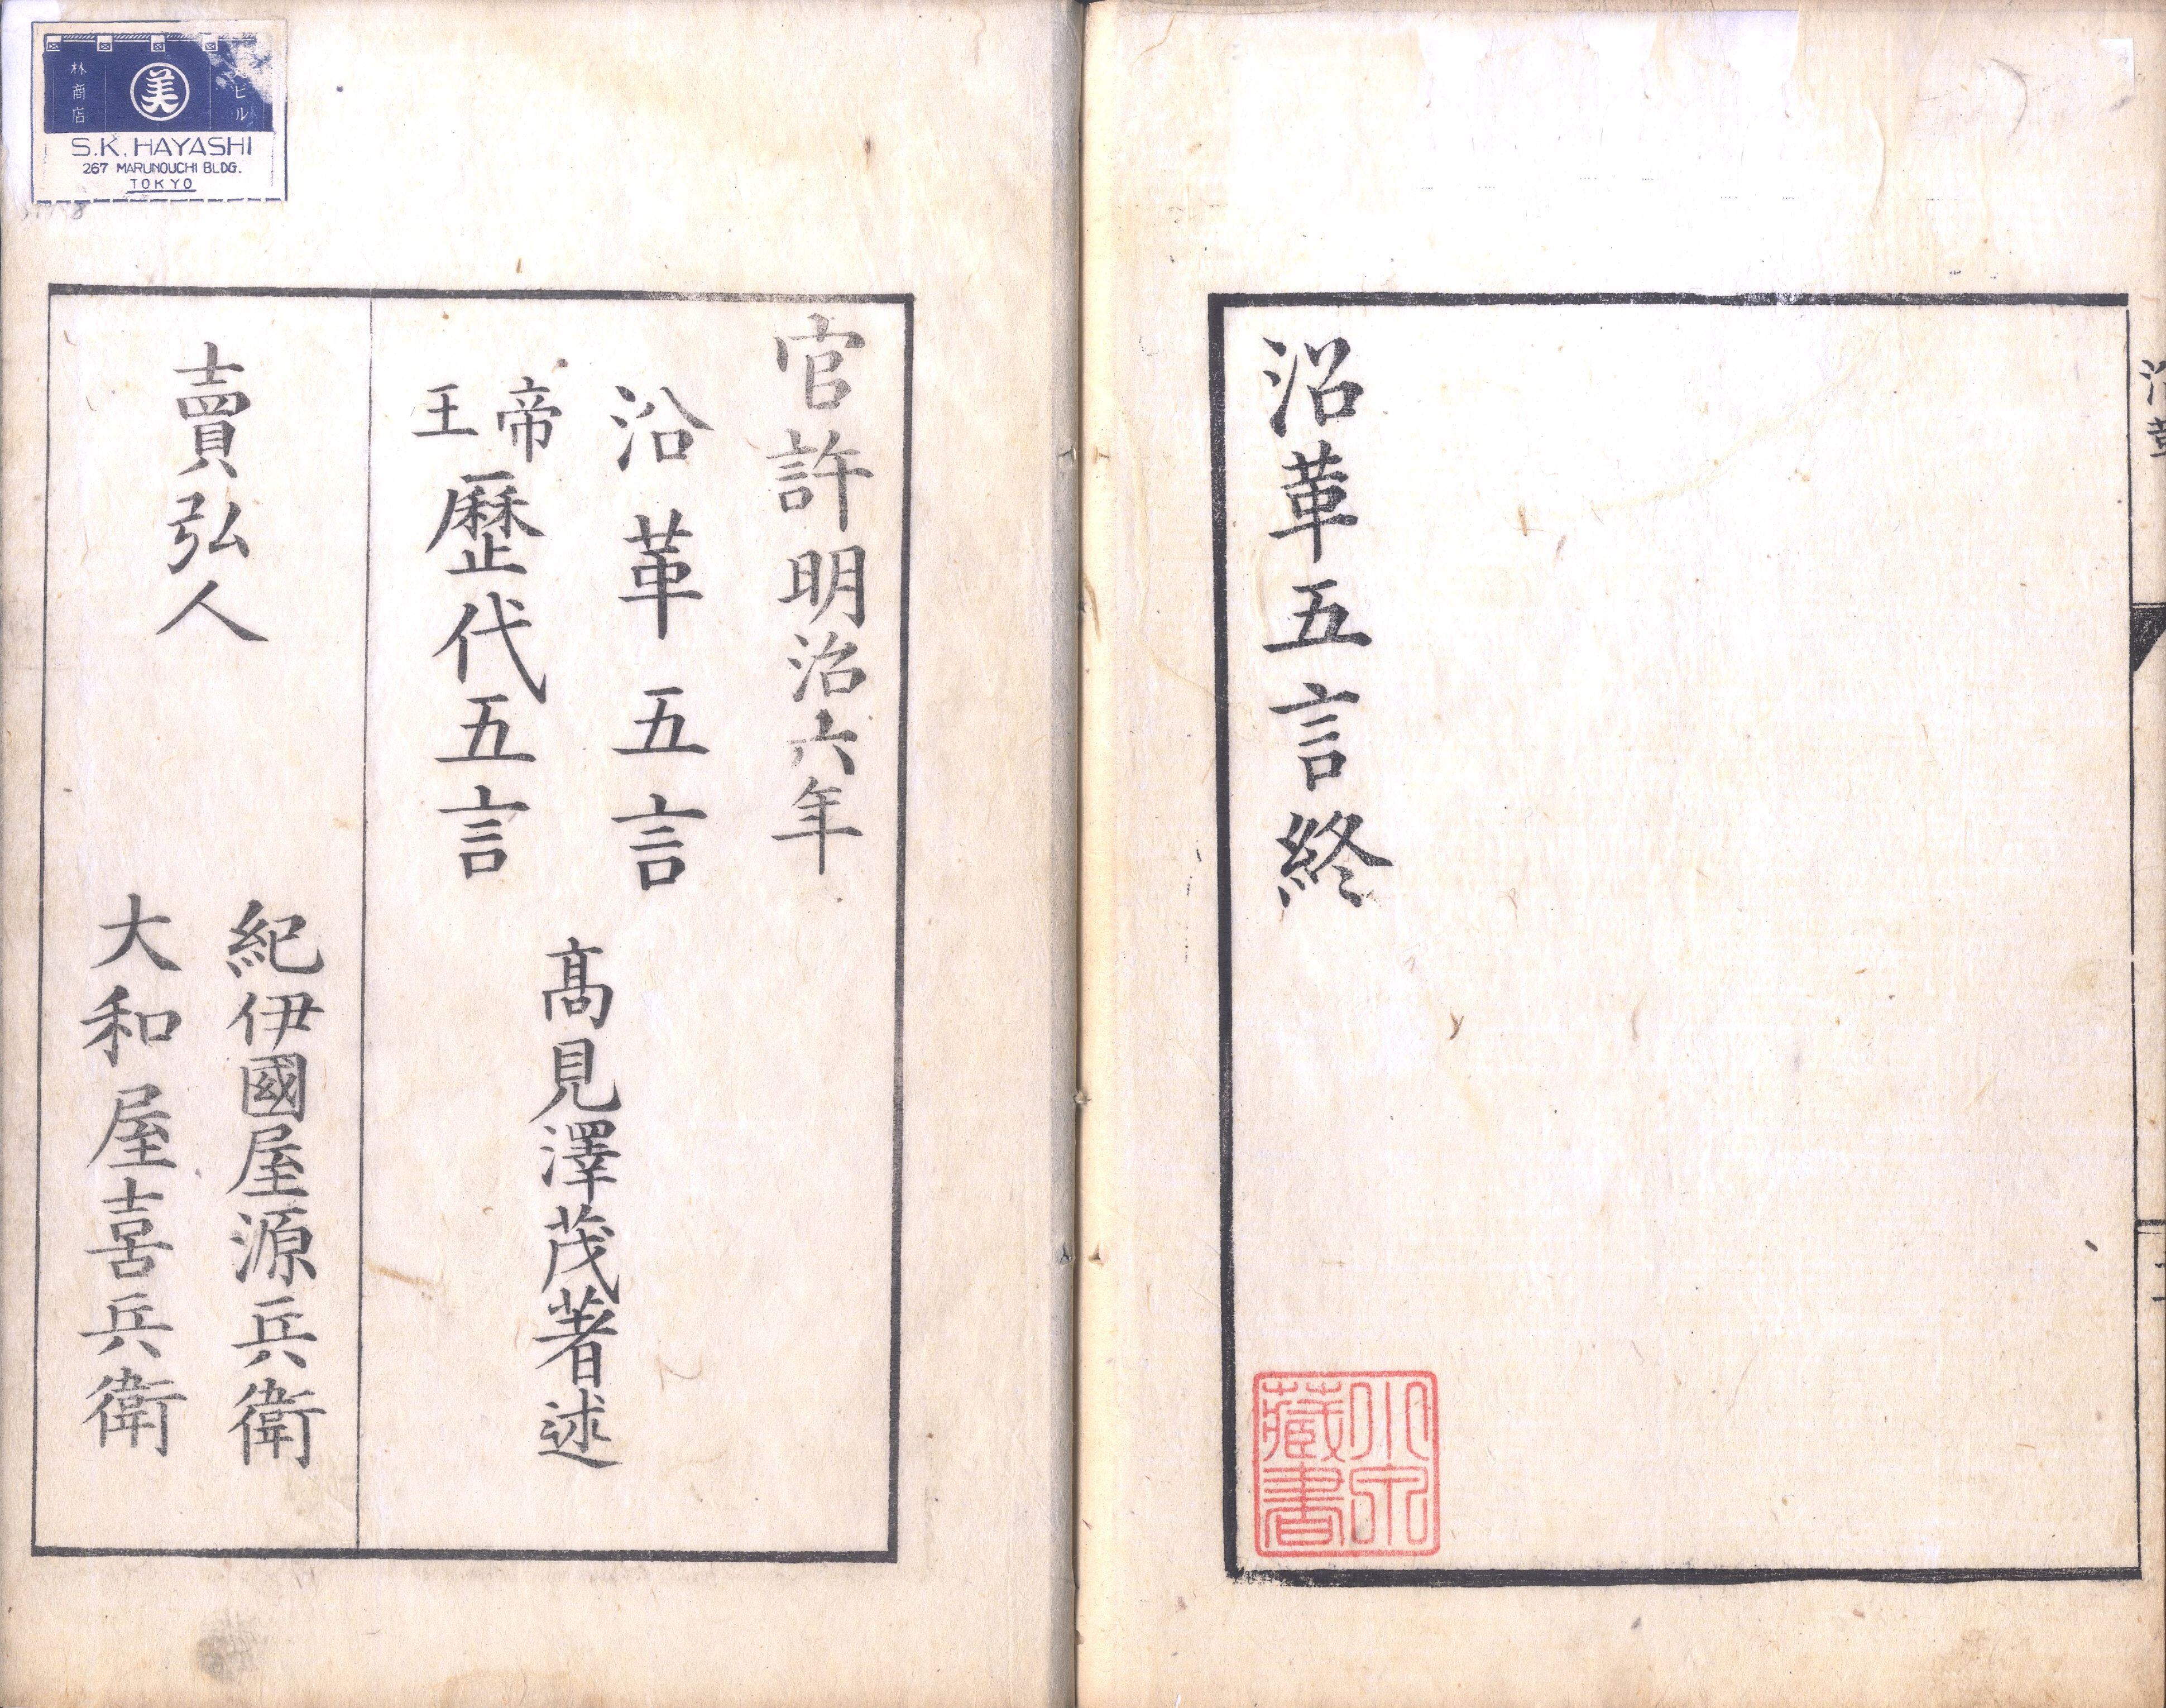 沿革
沿革五言終
小泉藏書
官許明治六年
沿革五言
帝王歷代五言
髙見澤茂著述
賣弘人
紀伊國屋源兵衛
大和屋喜兵衛
ビル
美
林商店
S.K. HAYASHI
267 MARUNOUCHI BLDG.
TOKYO